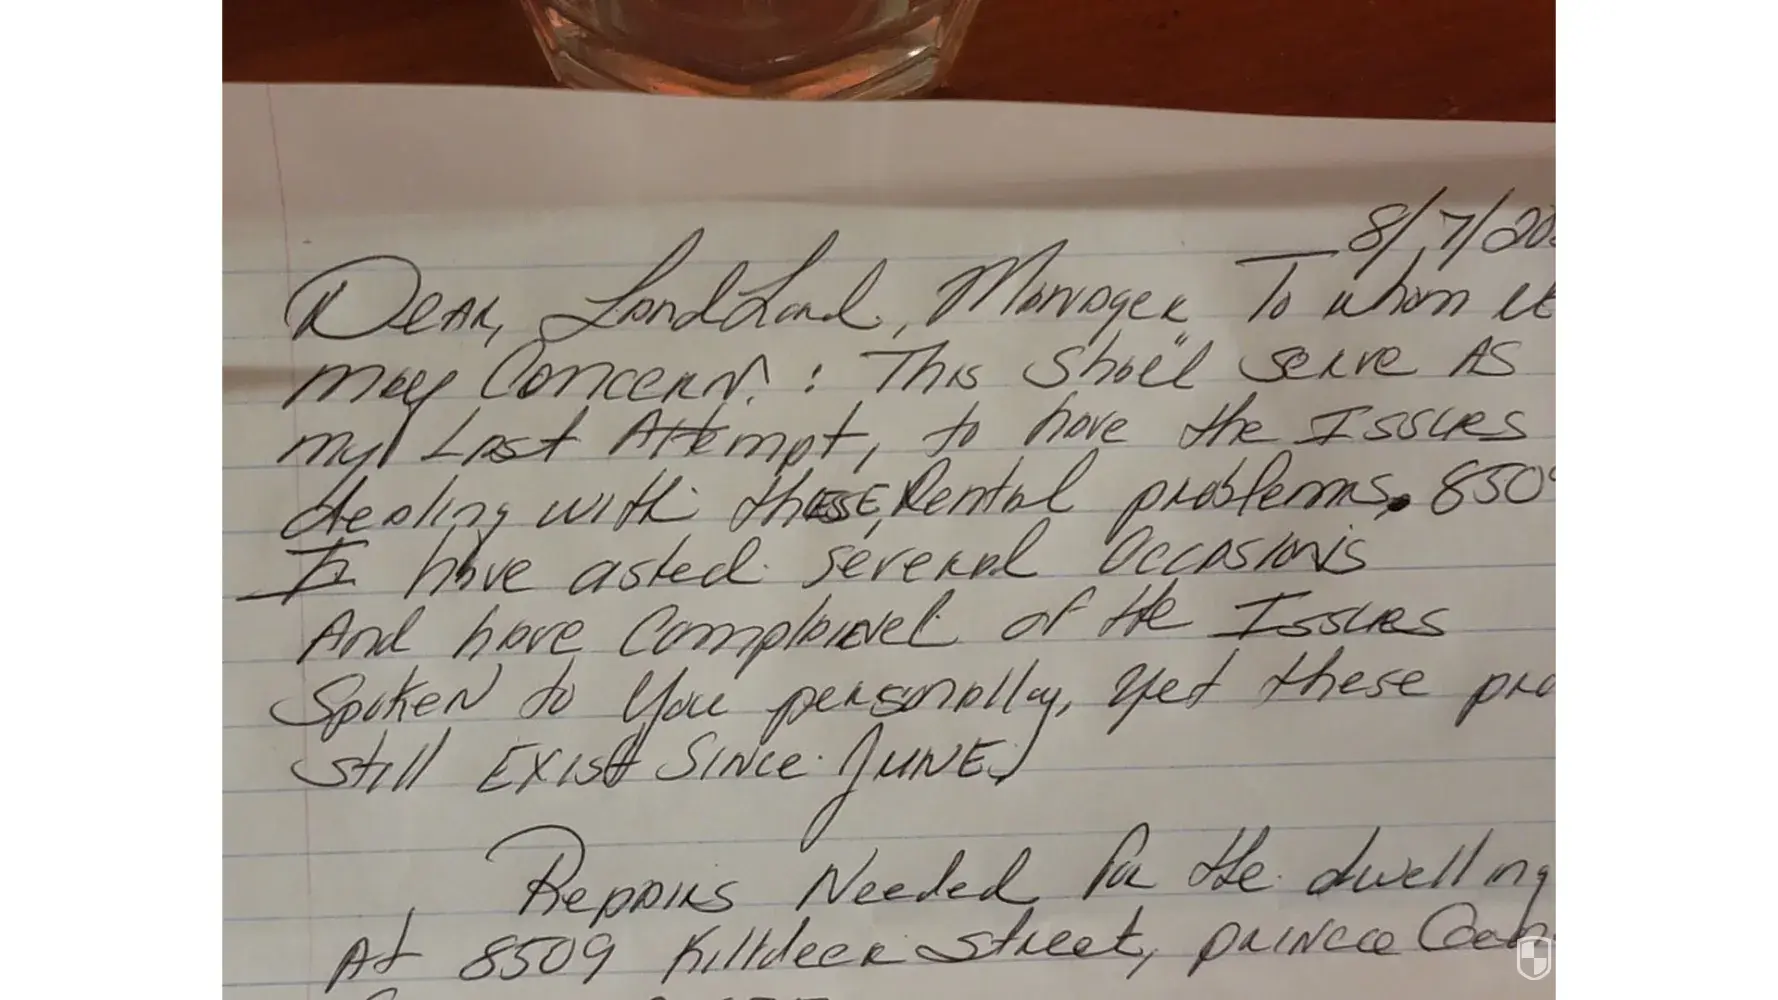 8/7/20
Dear, LandLord, Manager To whom it
may Concern. : This Shall serve As
my Last Attempt, to have the Issues
dealing with these, Rental problems. 850
I have asked several Occasions
And have Complained of the Issues
Spoken to You personally, yet these pro
still EXist Since June.
Repairs Needed for the dwelling
At 8509 Killdeer Street, prince